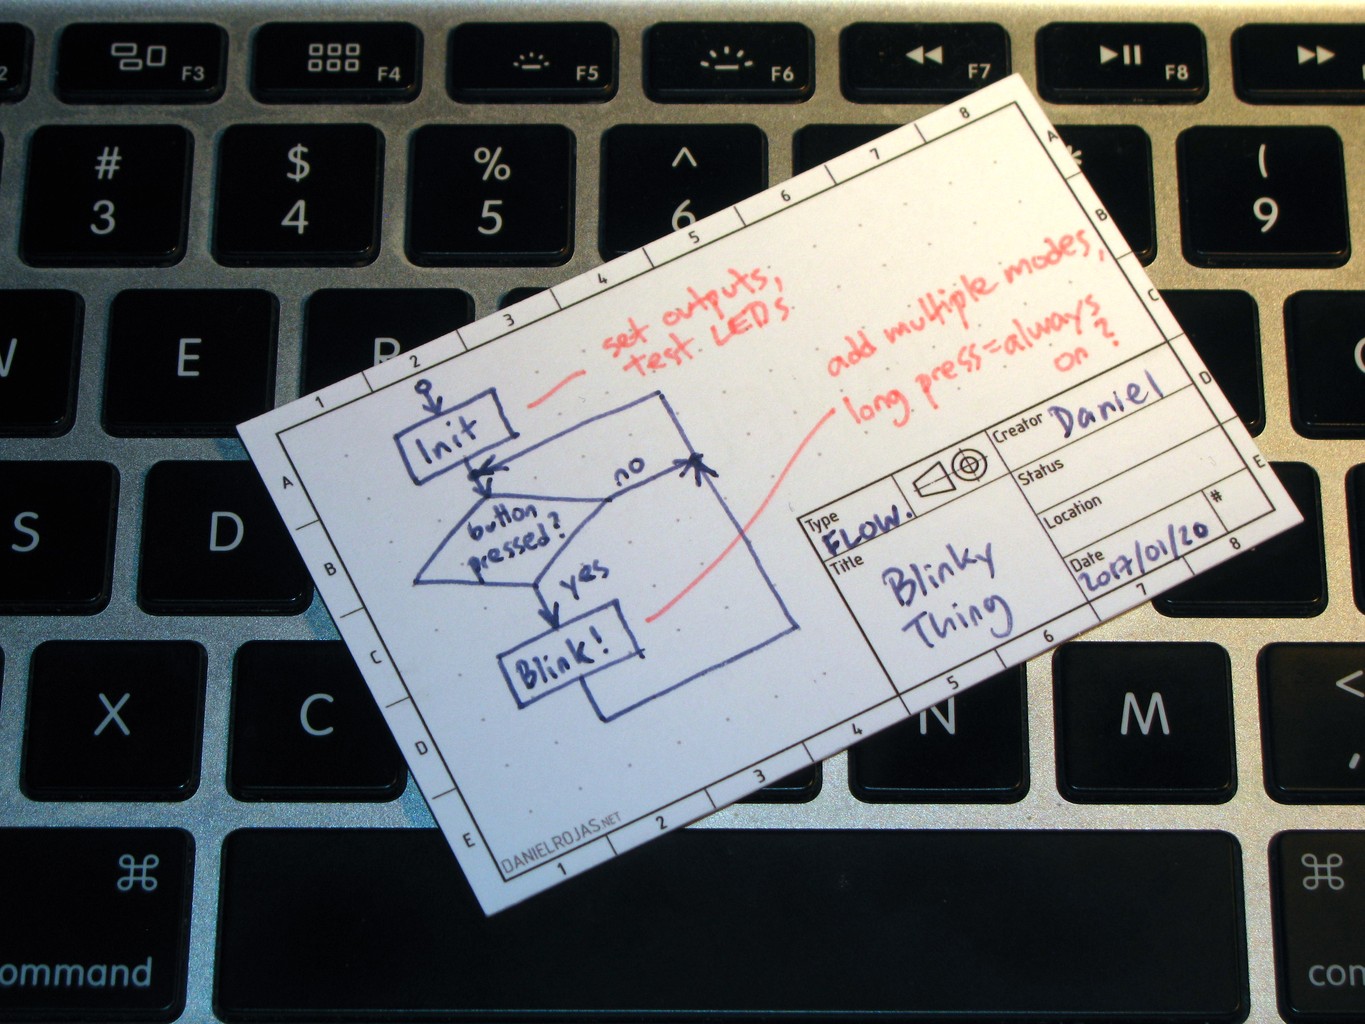 F3
F4
F5
F6
F7
F8
#
3
$
4
%
5
^
6
*
(
9
W
E
R
S
D
X
C
N
M
<
,
⌘
ommand
⌘
com
1 2 3 4 5 6 7 8
A
B
C
D
E
A
B
C
D
E
1 2 3 4 5 6 7 8
set outputs,
test LEDs.
add multiple modes,
long press=always
on?
Init
button
pressed?
no
yes
Blink!
Type
FLOW.
Title
Blinky
Thing
Creator Daniel
Status
Location
#
Date
2017/01/20
DANIELROJAS.NET